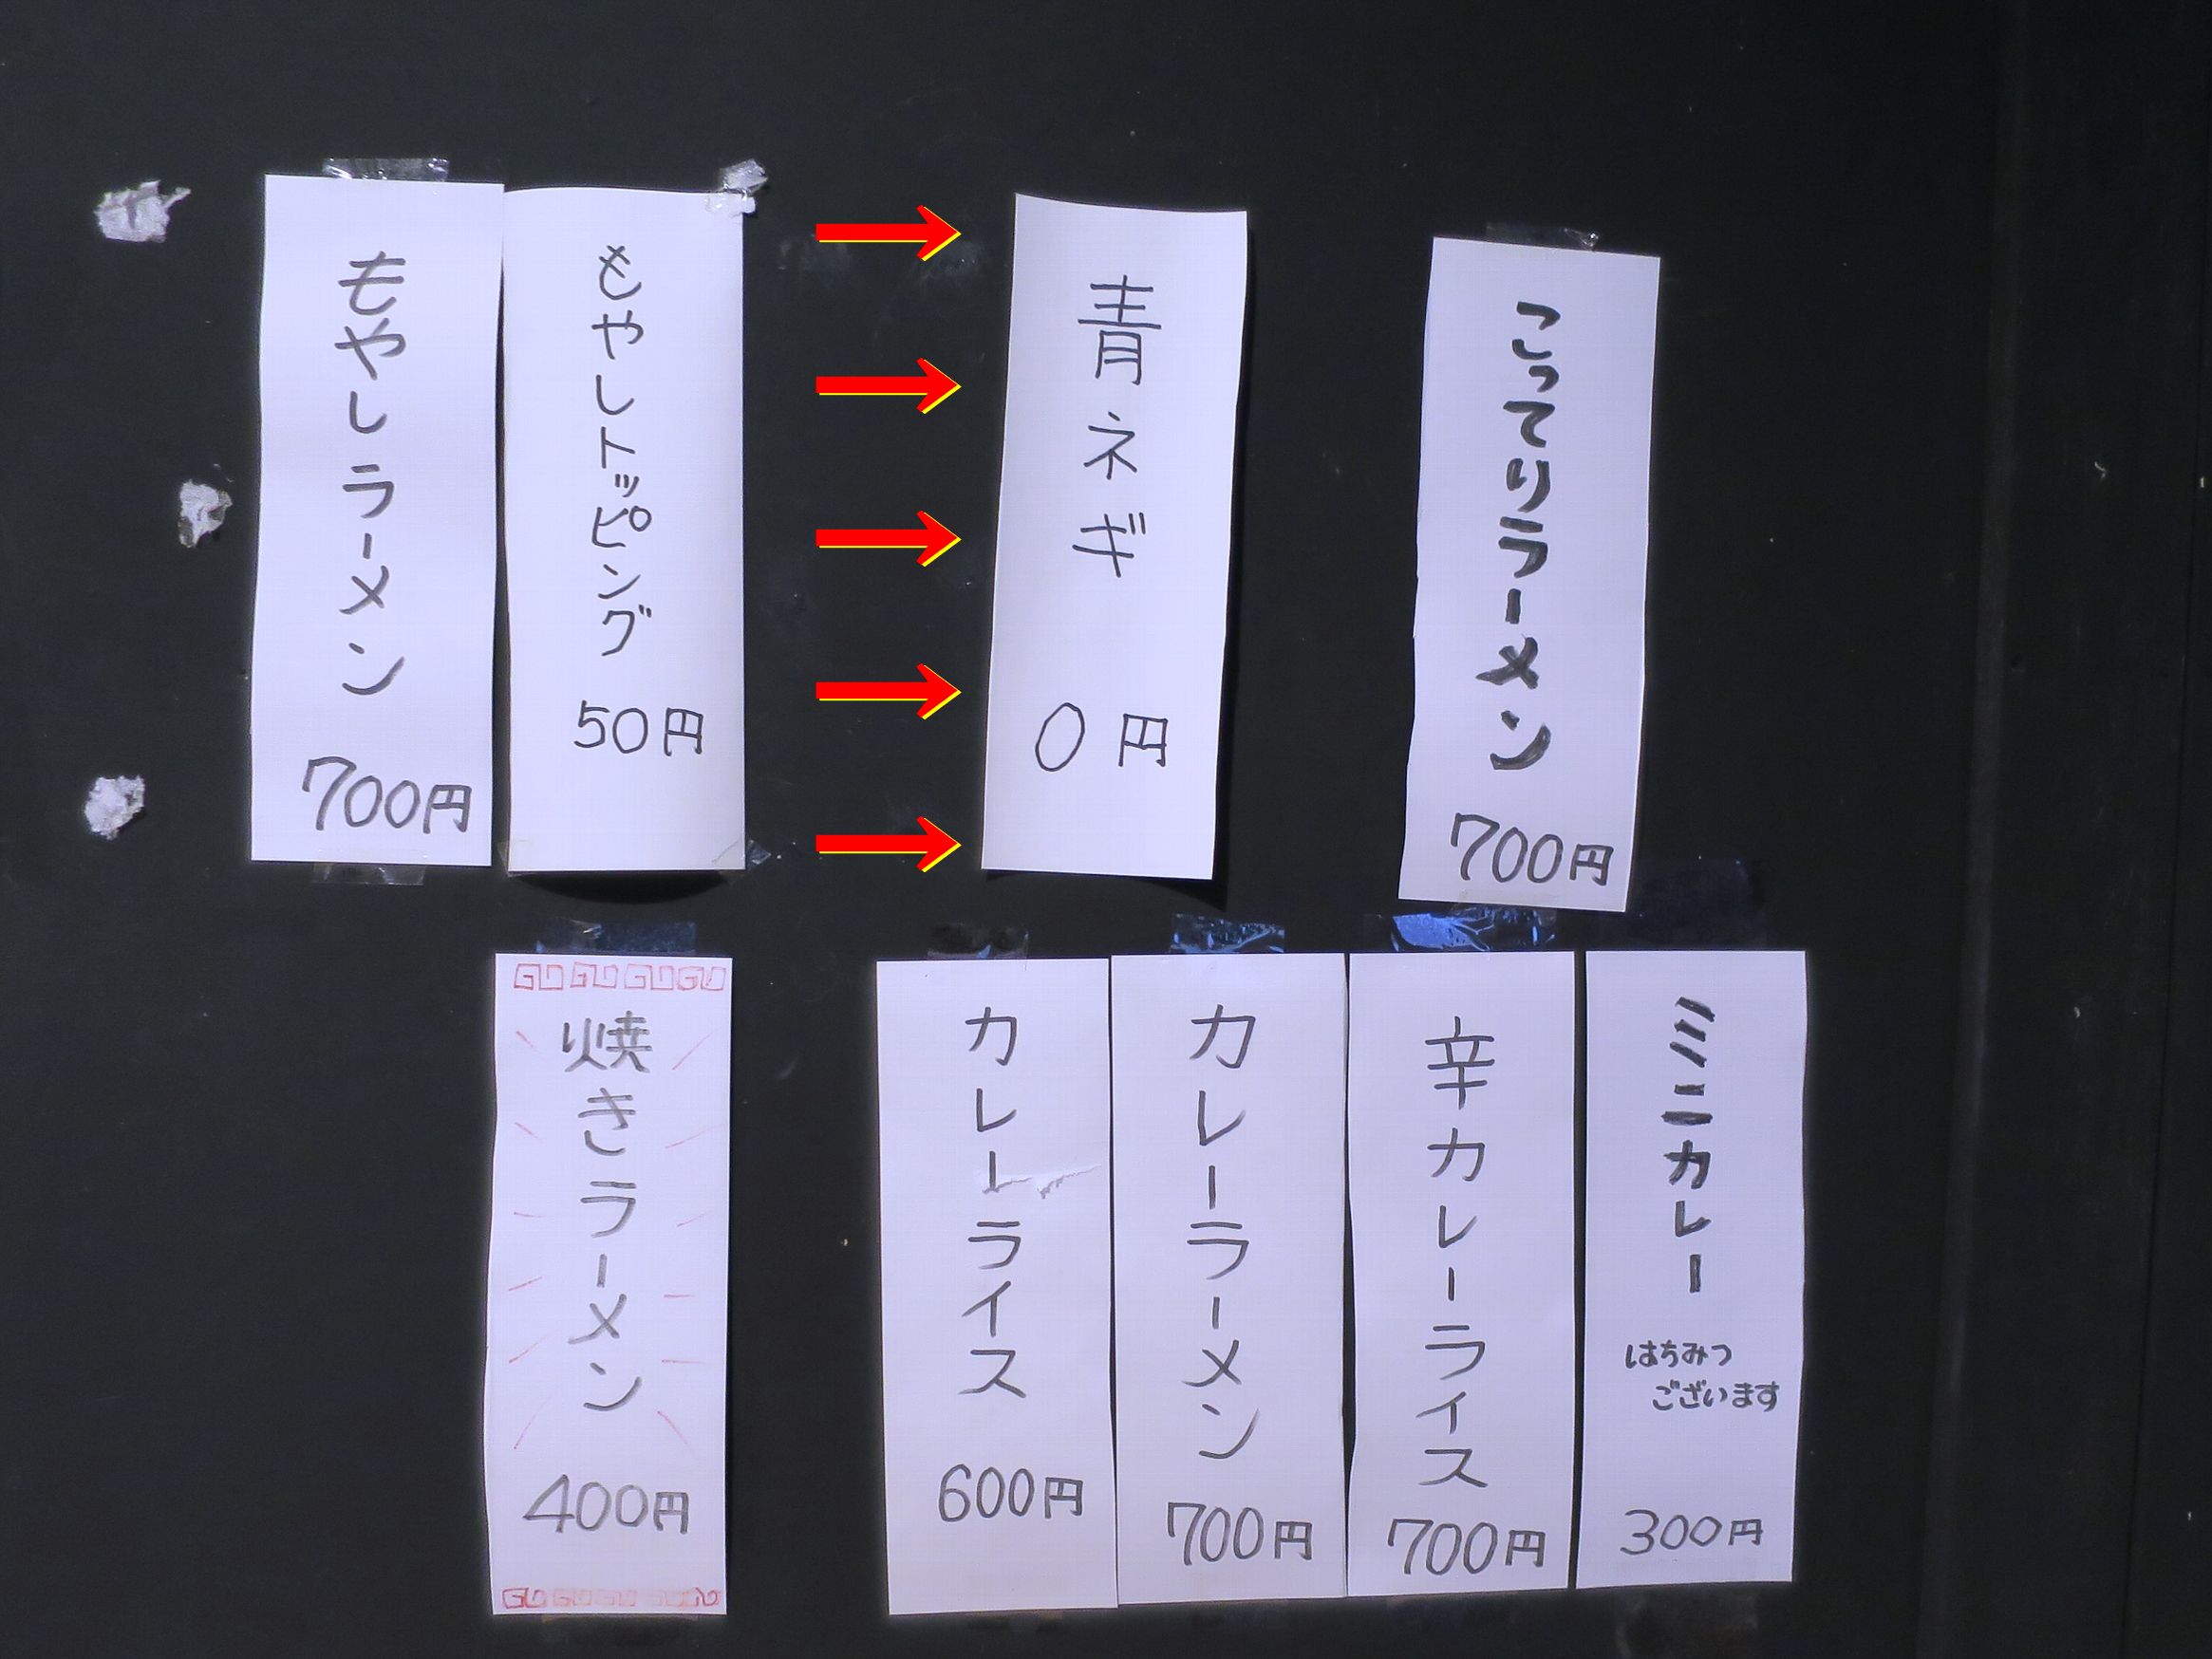 もやしラーメン
700円
もやしトッピング
50円
青ネギ
0円
こってりラーメン
700円
焼きラーメン
400円
カレーライス
600円
カレーラーメン
700円
辛カレーライス
700円
ミニカレー
はちみつ
ございます
300円